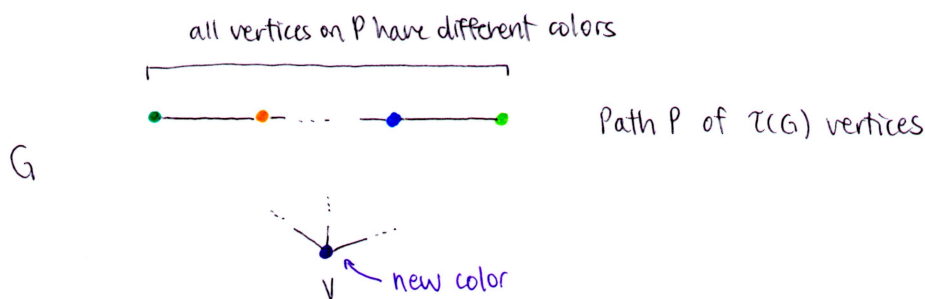 all vertices on P have different colors
Path P of τ(G) vertices
G
new color
v